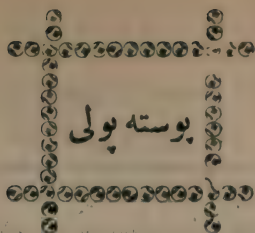 پوسته پولی